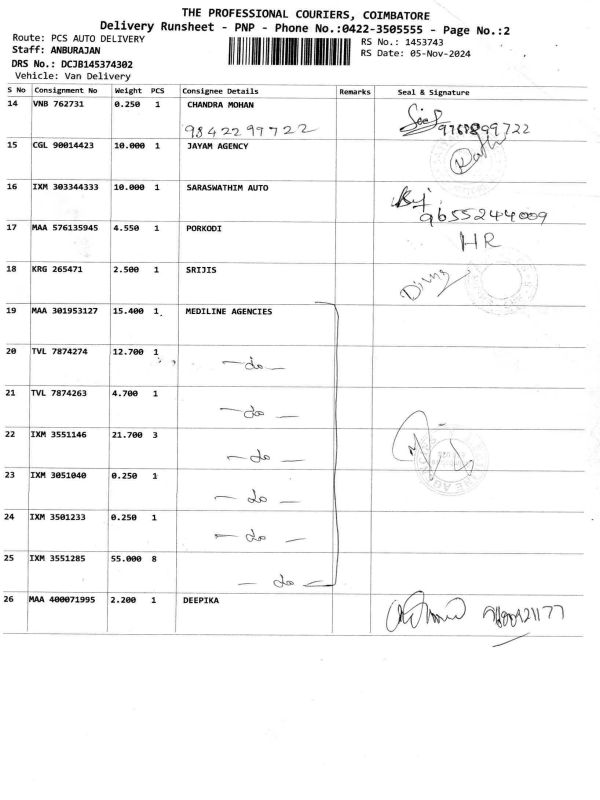 THE PROFESSIONAL COURIERS, COIMBATORE
Delivery Runsheet - PNP - Phone No.:0422-3505555 - Page No.:2
Route: PCS AUTO DELIVERY
RS No.: 1453743
Staff: ANBURAJAN
RS Date: 05-Nov-2024
DRS No.: DCJB145374302
Vehicle: Van Delivery
S No Consignment No Weight PCS Consignee Details Remarks Seal & Signature
14 VNB 762731 0.250 1 CHANDRA MOHAN
9842299722
15 CGL 90014423 10.000 1 JAYAM AGENCY
16 IXM 303344333 10.000 1 SARASWATHIM AUTO
9655244009
17 MAA 576135945 4.550 1 PORKODI
HR
18 KRG 265471 2.500 1 SRIJIS
19 MAA 301953127 15.400 1 MEDILINE AGENCIES
20 TVL 7874274 12.700 1
- do -
21 TVL 7874263 4.700 1
- do -
22 IXM 3551146 21.700 3
- do -
23 IXM 3051040 0.250 1
- do -
24 IXM 3501233 0.250 1
- do -
25 IXM 3551285 55.000 8
- do -
26 MAA 400071995 2.200 1 DEEPIKA